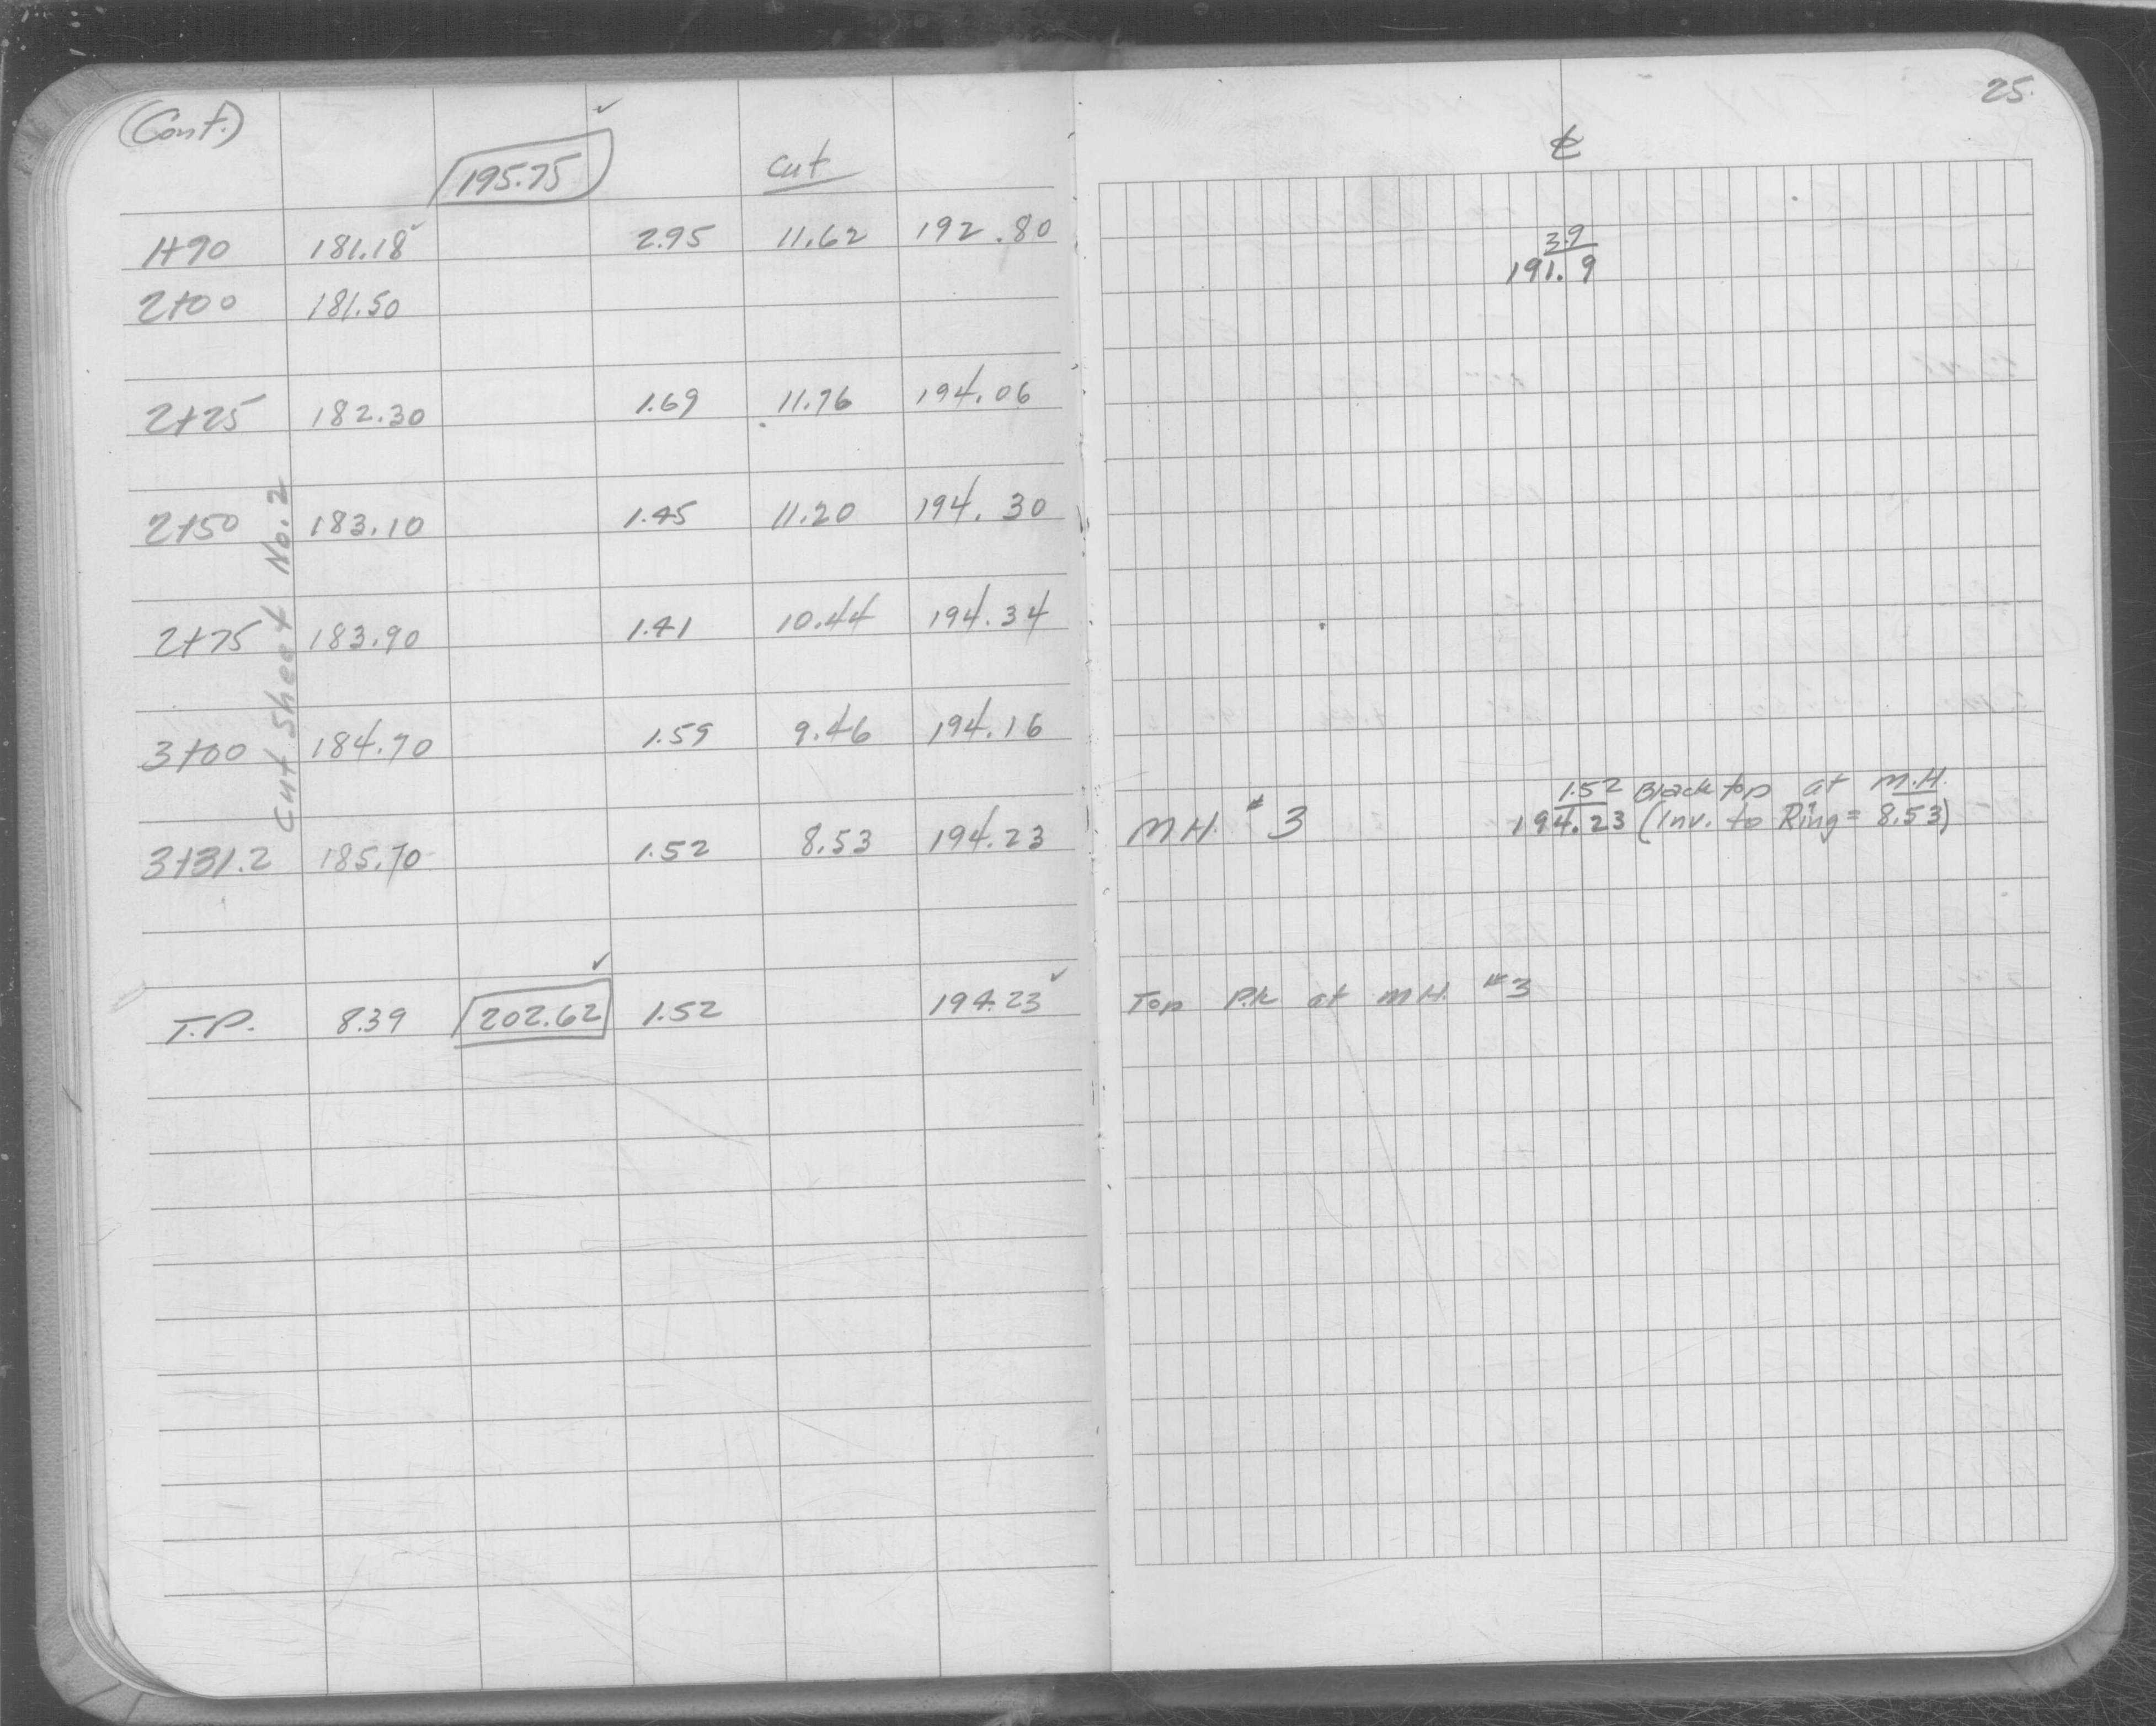 (Cont.)
195.75 ✓ Cut
1+90 181.18 ✓ 2.95 11.62 192.80
2+00 181.50
2+25 182.30 1.69 11.76 194.06
2+50 183.10 1.45 11.20 194.30
2+75 183.90 1.41 10.44 194.34
3+00 184.70 1.59 9.46 194.16
3+31.2 185.70 1.52 8.53 194.23
T.P. 8.39 202.62 ✓ 1.52 194.23 ✓
Cut Sheet No. 2
25.
℄
3.9
191.9
1.52 Blacktop at M.H.
M.H. #3 194.23 (Inv. to Ring = 8.53)
Top P.K at M.H. #3